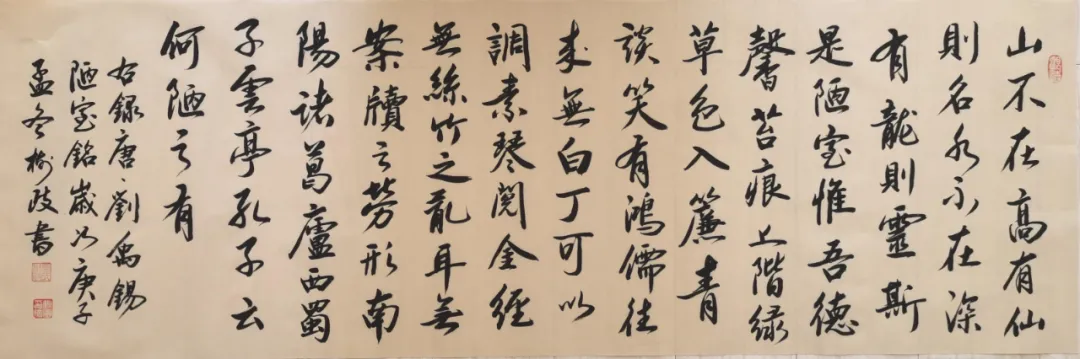 山不在高有仙
則名水不在深
有龍則靈斯
是陋室惟吾德
馨苔痕上階緑
草色入簾青
談笑有鴻儒往
來無白丁可以
調素琴閱金經
無絲竹之亂耳無
案牘之勞形南
陽諸葛廬西蜀
子雲亭孔子云
何陋之有
右錄唐劉禹錫
陋室銘歲次庚子
孟冬樹歧書